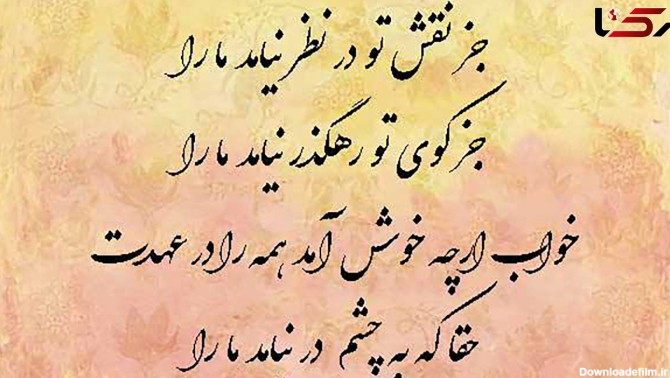 رکنا
جز نقش تو در نظر نیامد ما را
جز کوی تو رهگذر نیامد ما را
خواب ارچه خوش آمد همه را در عهدت
حقا که به چشم در نیامد ما را
Downloadefilm.ir